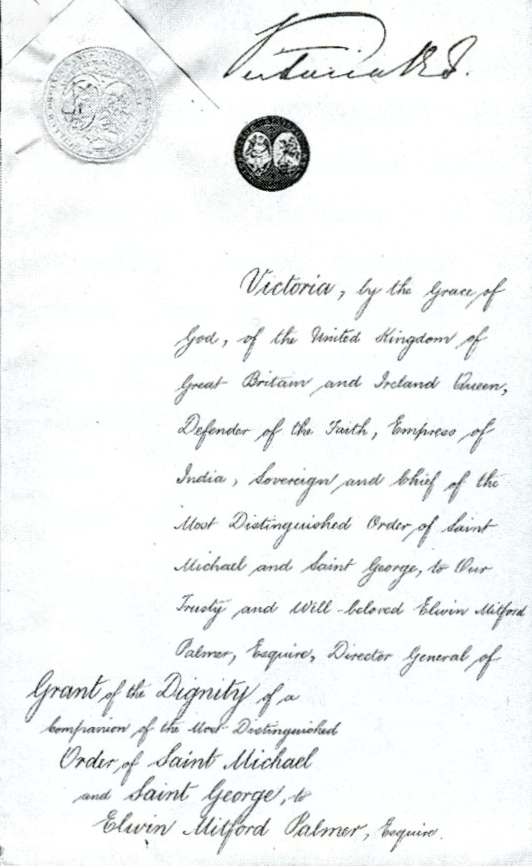 Victoria R I.
Victoria, by the Grace of
God, of the United Kingdom of
Great Britain and Ireland Queen,
Defender of the Faith, Empress of
India, Sovereign and Chief of the
Most Distinguished Order of Saint
Michael and Saint George, to Our
Trusty and Well-beloved Elwin Mitford
Palmer, Esquire, Director General of
Grant of the Dignity of a
Companion of the Most Distinguished
Order of Saint Michael
and Saint George, to
Elwin Mitford Palmer, Esquire.